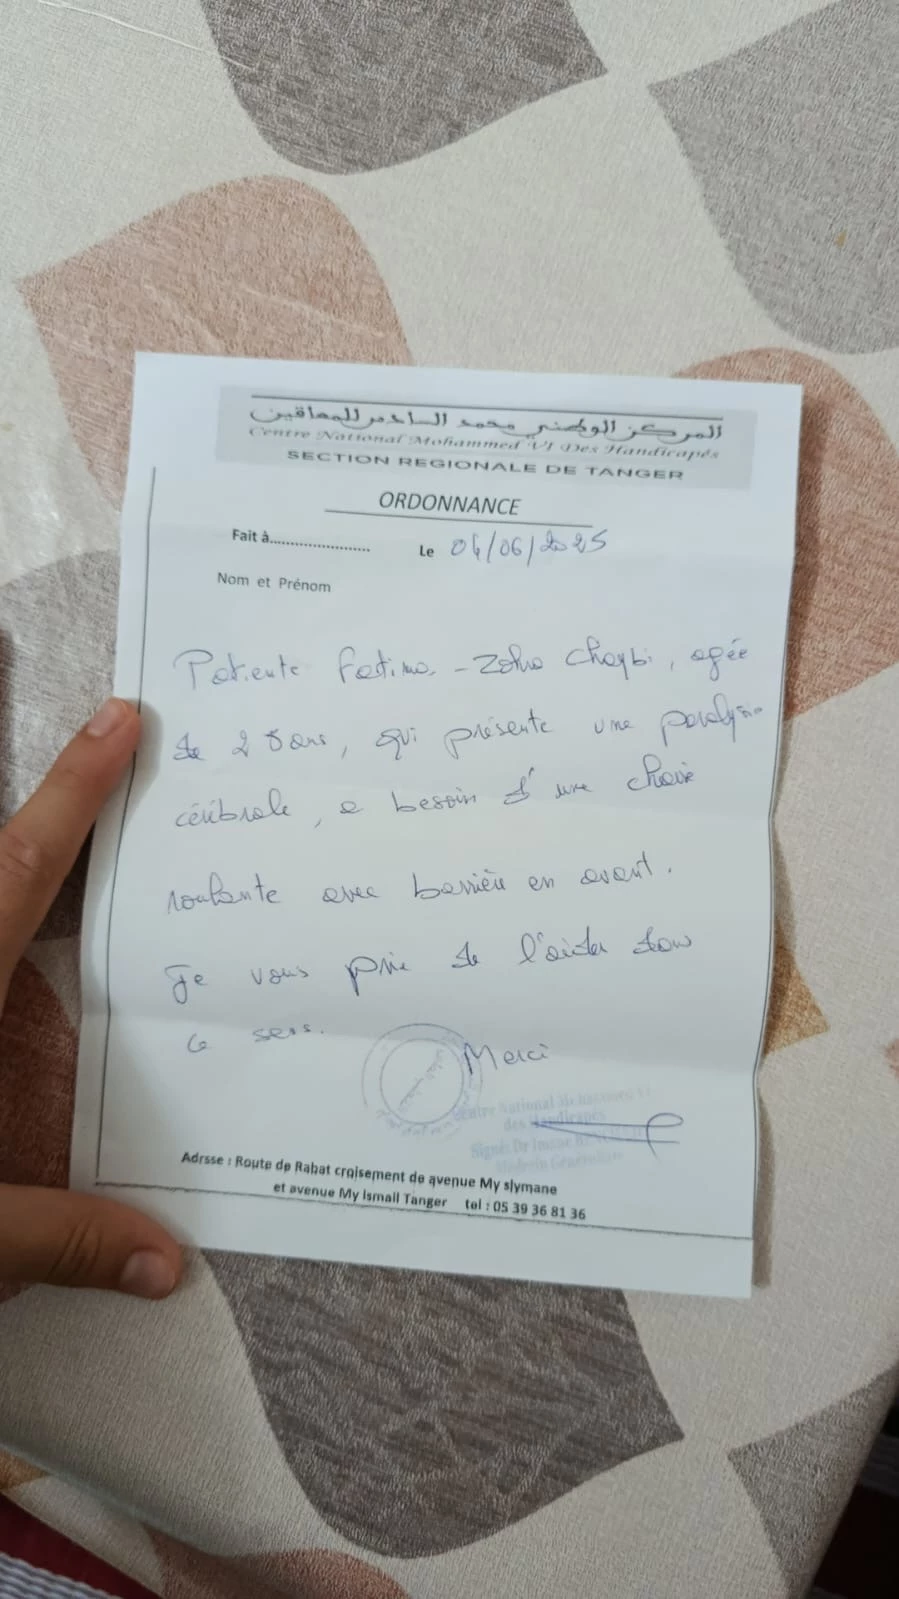 المركز الوطني محمد السادس للمعاقين
Centre National Mohammed VI Des Handicapés
SECTION REGIONALE DE TANGER
ORDONNANCE
Fait à....................... Le 04/06/2025
Nom et Prénom
Patiente Fatima-Zohra Chaybi, agée
de 28 ans, qui présente une paralysie
cérébrale, a besoin d'une chaise
roulante avec barrière en avant.
Je vous prie de l'aider dans
ce sens.
Merci
Centre National Mohammed VI
des Handicapés
Signé: Dr Imane
Médecin Généraliste
Adrsse : Route de Rabat croisement de avenue My slymane
et avenue My Ismail Tanger tel : 05 39 36 81 36